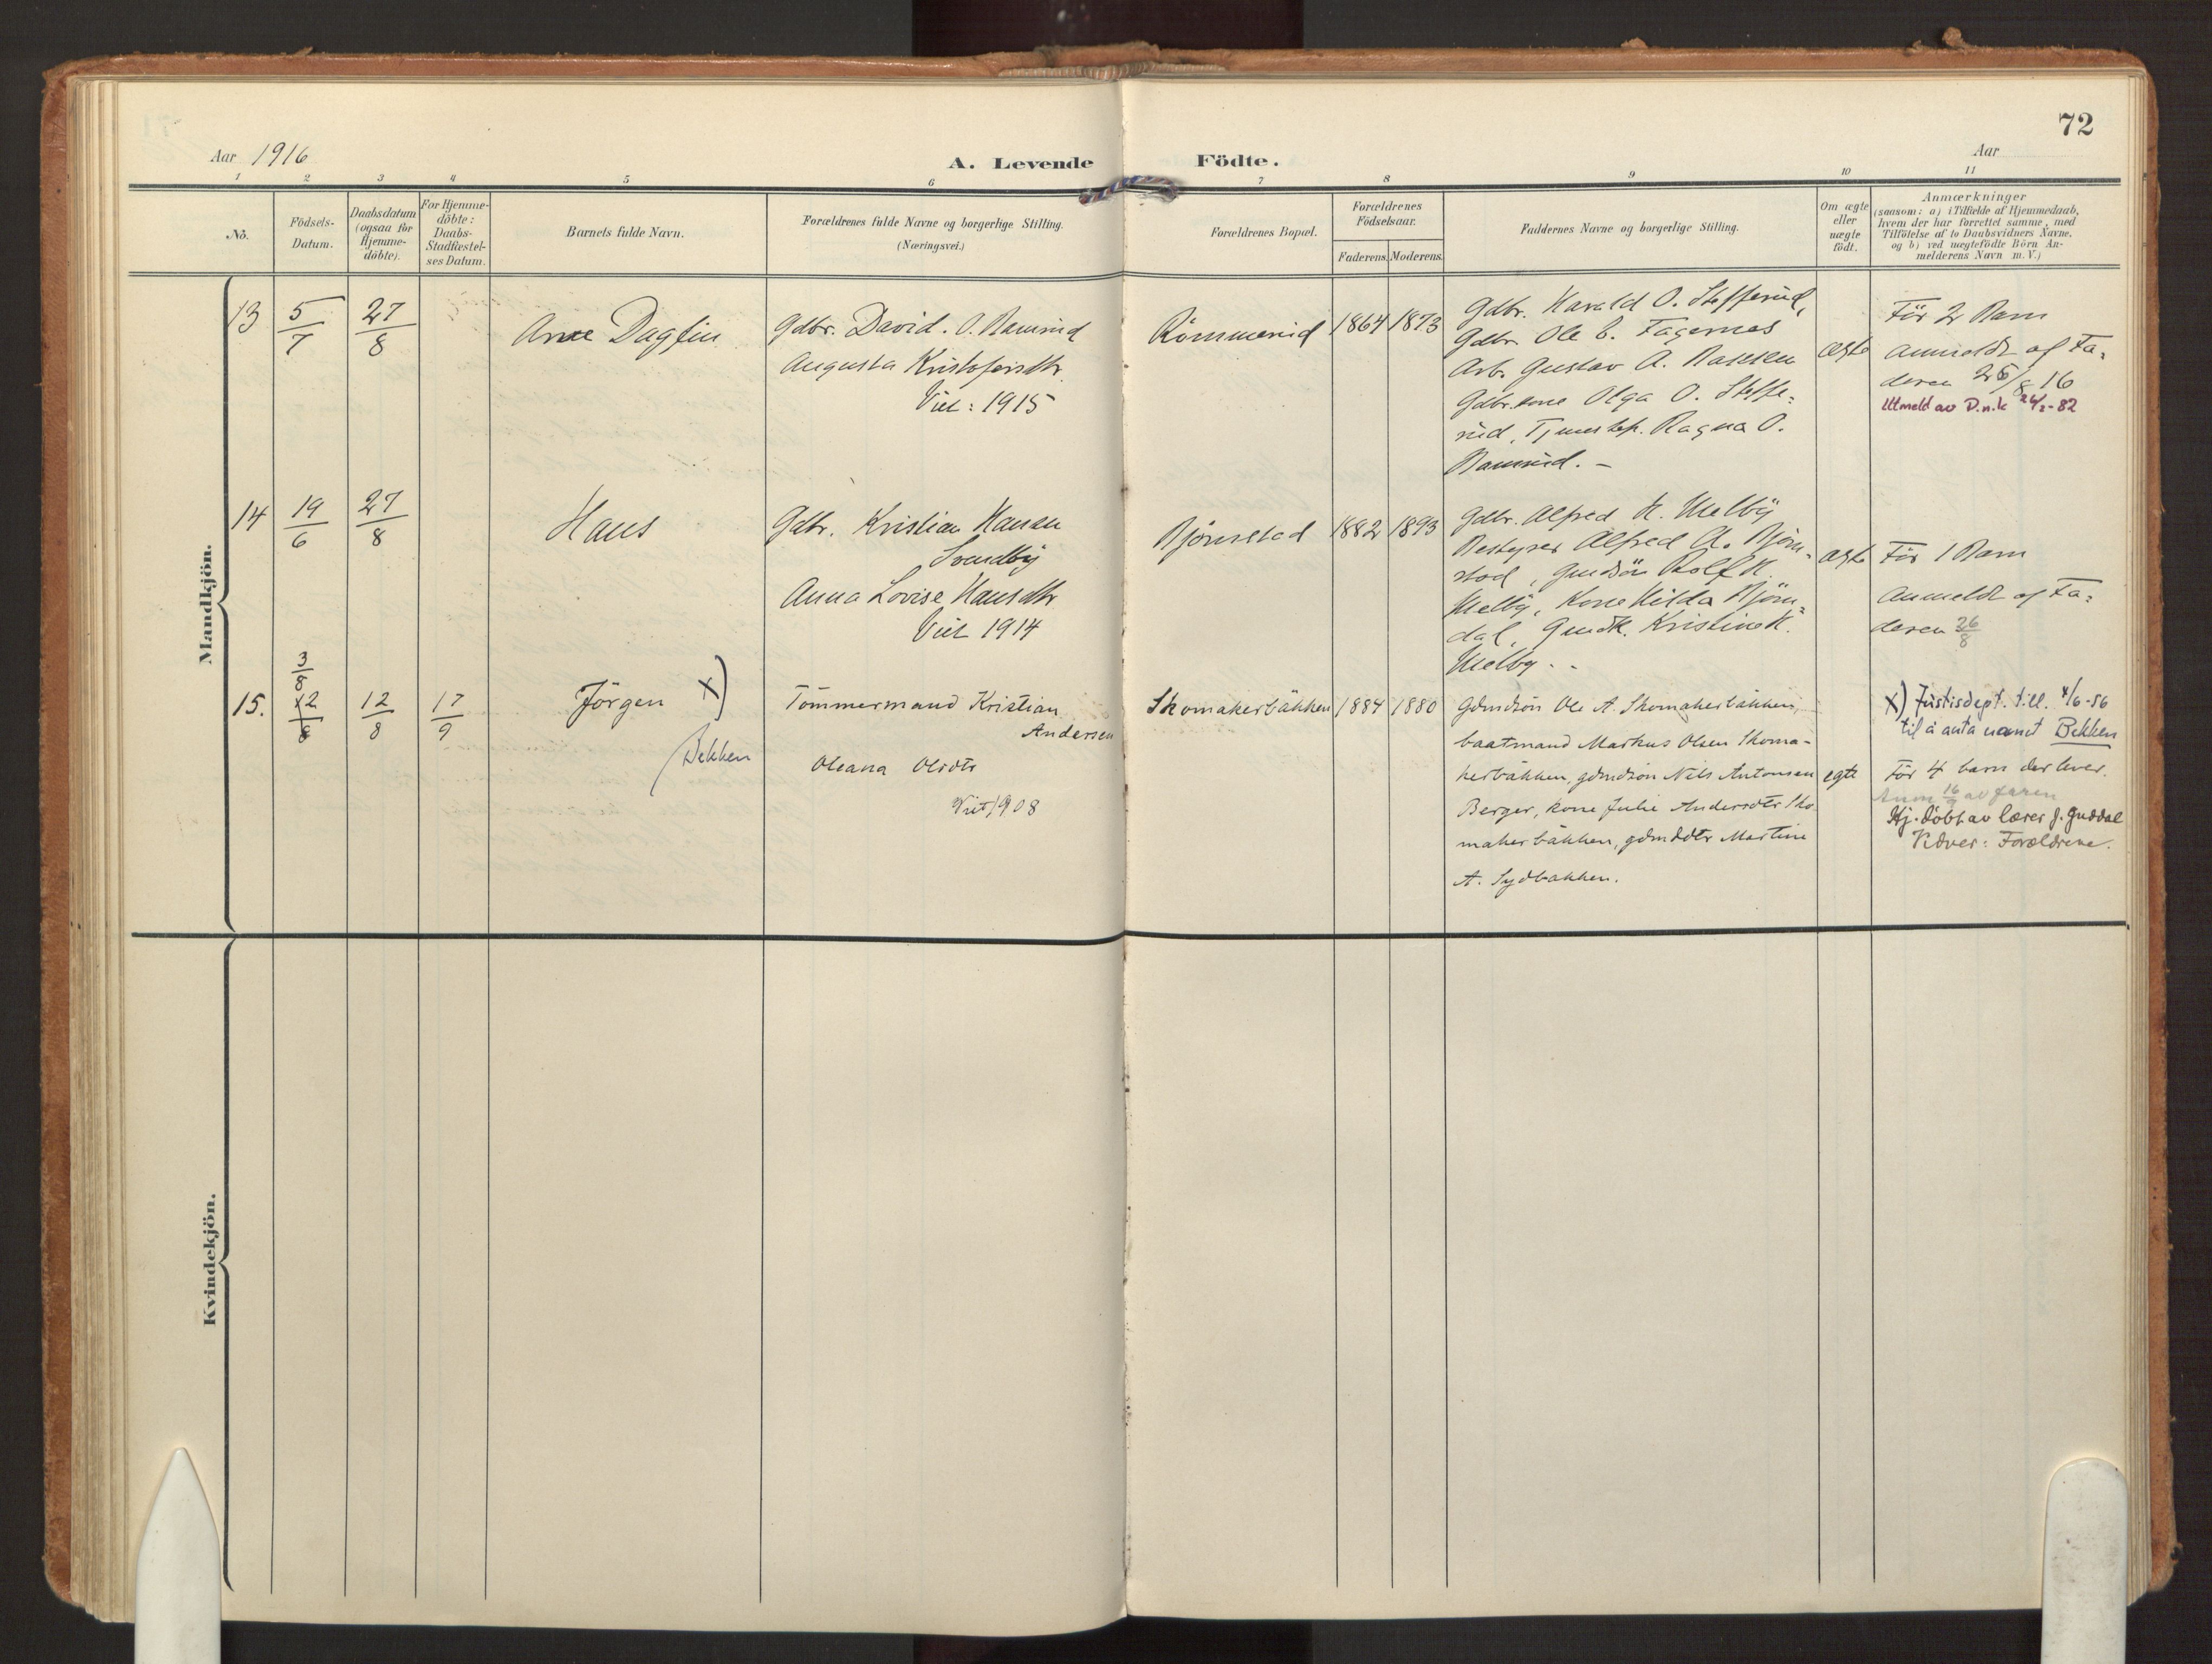 72
Aar 1916
A. Levende Födte.
Aar
1 2 3 4 5 6 7 8 9 10 11
No.
Födsels-
Datum.
Daabsdatum
(ogsaa for
Hjemme-
döbte).
For Hjemme-
döbte:
Daabs-
Stadfæstel-
ses Datum.
Barnets fulde Navn.
Forældrenes fulde Navne og borgerlige Stilling.
(Næringsvei.)
Forældrenes Bopæl.
Forældrenes
Födselsaar.
Faderens. Moderens.
Faddernes Navne og borgerlige Stilling.
Om ægte
eller
uægte
födt.
Anmærkninger
(saasom: a) i Tilfælde af Hjemmedaab,
hvem der har forrettet samme, med
Tilföielse af to Daabsvidners Navne,
og b) ved uægtefödte Börn An-
melderens Navn m. V.)
Mandkjön.
13
5/7
27/8
Arne Dagfin
Gdbr. David. O. Ramsrud
Augusta Kristofersdtr.
Viet: 1915
Römmerud
1864 1873
Gdbr. Harald O. Stefferud,
Gdbr. Ole E. Fagernes
Arb. Gustav A. Hansen
Gdbr.kone Olga O. Steffe=
rud, Tjenestep. Ragna O.
Ramsrud. –
ægte
För 2 Barn
anmeldt af Fa=
deren 26/8 16
Utmeld av D.n.k 24/2-82
14
19/6
27/8
Hans
Gdbr. Kristian Hansen
Svendby
Anna Lovise Hansdtr
Viet 1914
Björnstad
1882 1893
Gdbr. Alfred K. Melby
Bestyrer Alfred A. Björn=
stad, Gmdsön Rolf K.
Melby, Kone Hilda Björn=
dal, Gmdt. Kristine K.
Melby. -
ægte
För 1 Barn
Anmeldt af Fa=
deren 26/8
15.
3/8
12/8
12/8
17/9
Jörgen x)
Bekken
Tömmermand Kristian
Andersen
Oleana Olsdtr
Viet 1908
Skomakerbäkken
1884 1880
Gdmdsön Ole A. Skomakerbäkken,
baatmand Markus Olsen Skoma-
kerbäkken, gdmdsön Nils Antonsen
Berger, kone Julie Andersdtr Sko
makerbäkken, gdmddtr Martine
A. Sydbakken.
egte
x) Justisdept. till. 4/6-56
til å anta navnet Bekken
För 4 barn der lever.
Anm 16/9 av faren
Hj. döbt av lærer J. Guddal
Vidner: Forældrene.
Kvindekjön.